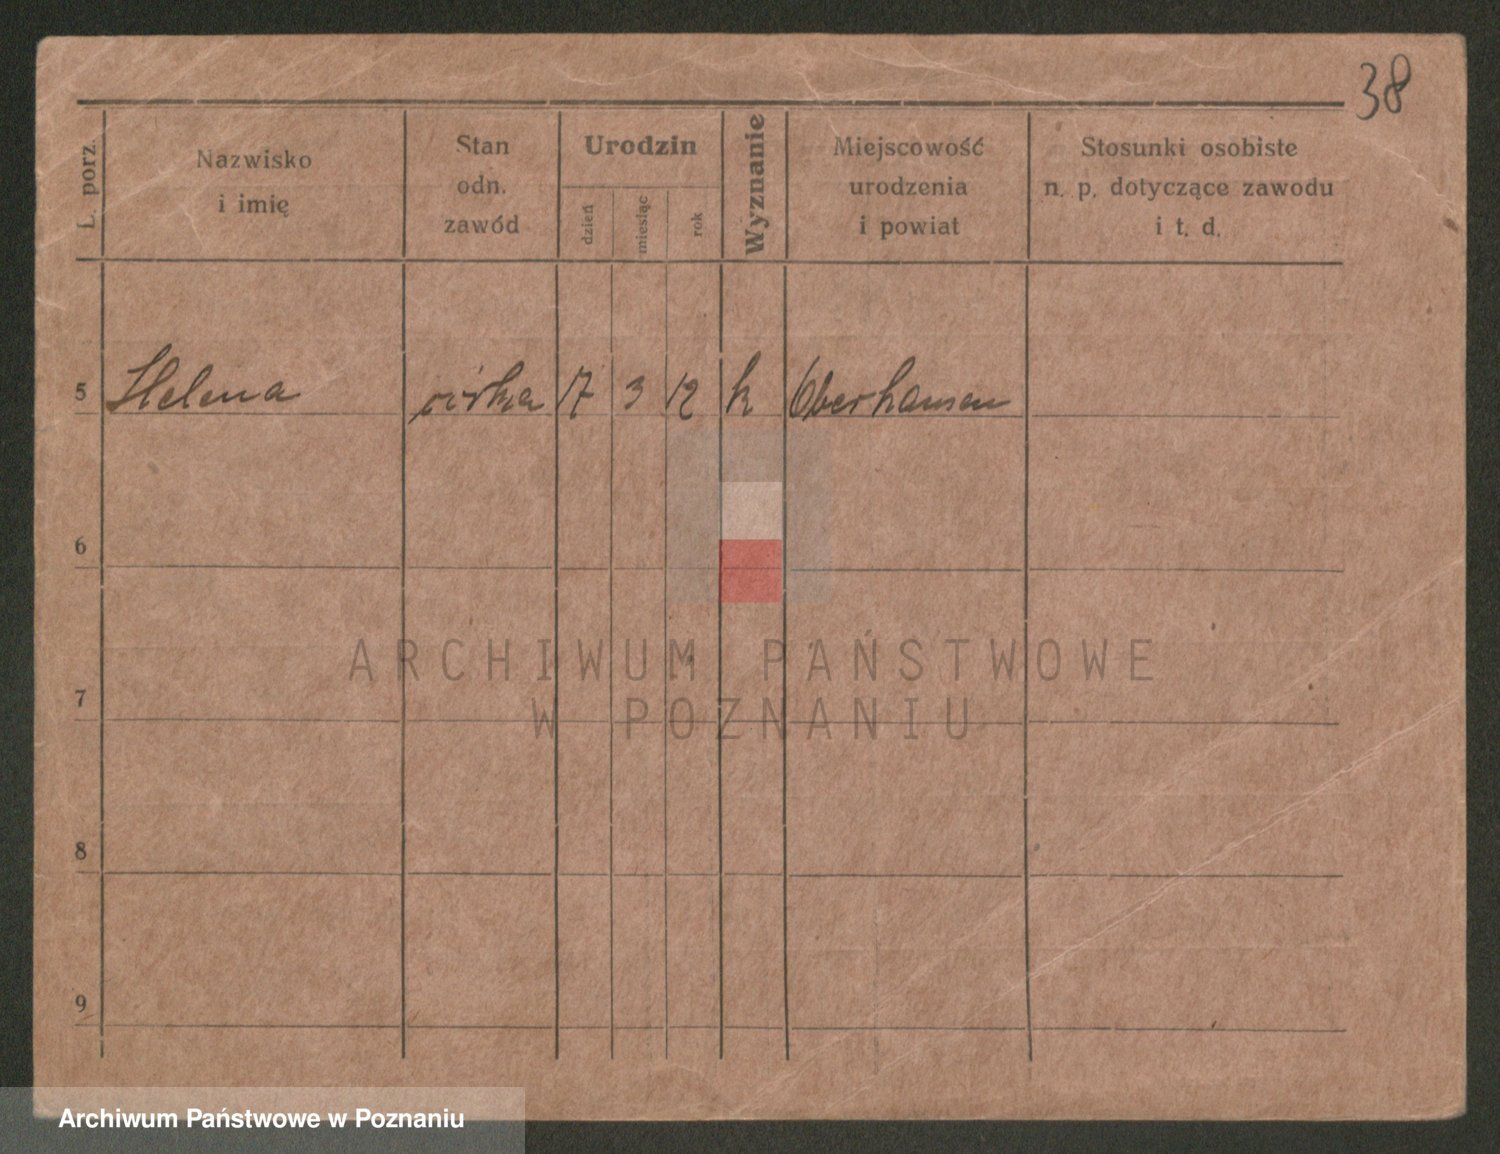 38
L. porz.
Nazwisko
i imię
Stan
odn.
zawód
Urodzin
dzień
miesiąc
rok
Wyznanie
Miejscowość
urodzenia
i powiat
Stosunki osobiste
n. p. dotyczące zawodu
i t. d.
5 Helena córka 17 3 12 k Oberhausen
6
7
8
9
ARCHIWUM PAŃSTWOWE
W POZNANIU
Archiwum Państwowe w Poznaniu